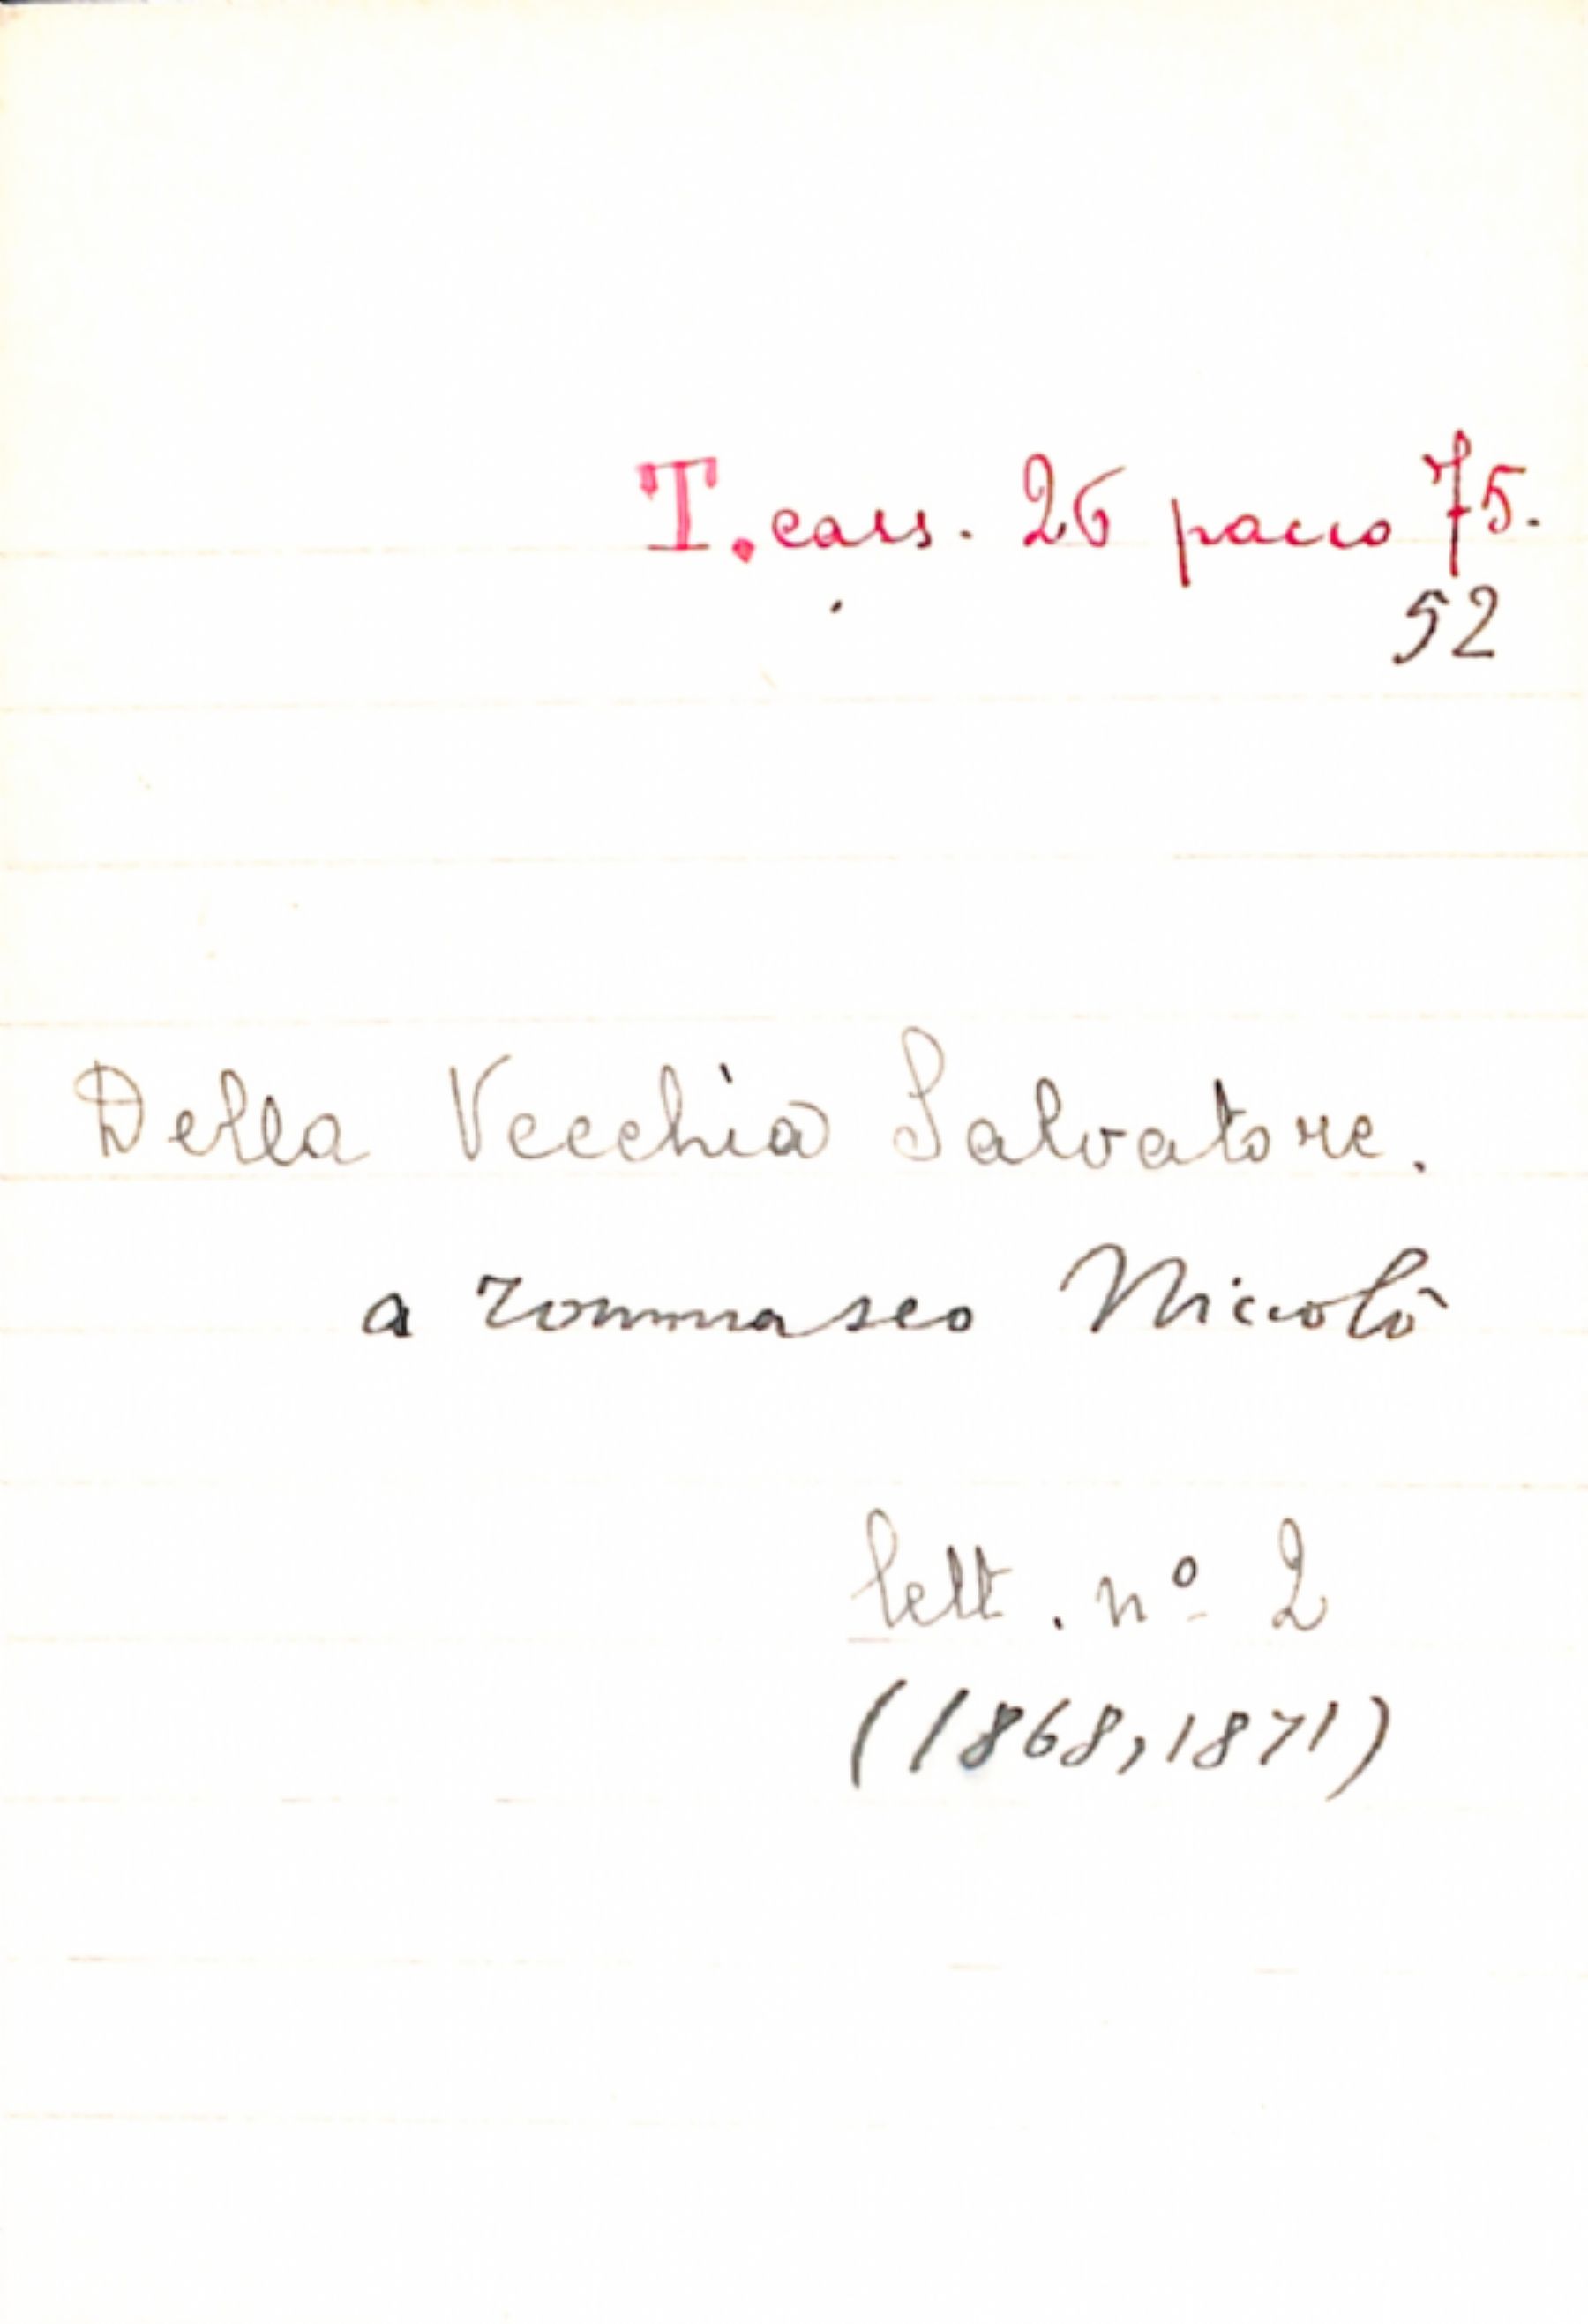 T. cass. 26 pacco 75.
52
Della Vecchia Salvatore.
a Tommaseo Niccolò
lett. nº 2
(1868, 1871)